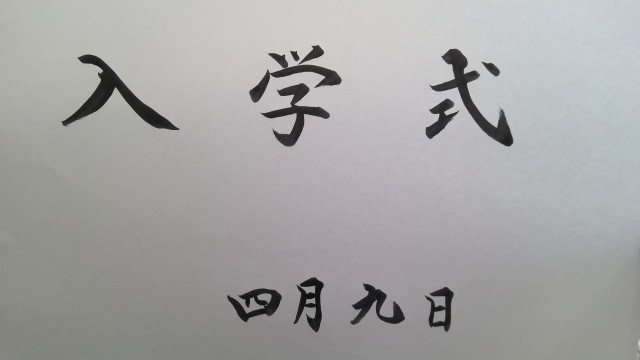 入学式
四月九日